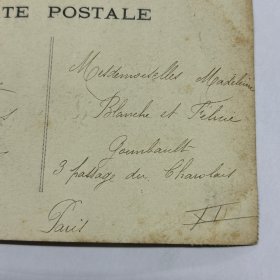 TE POSTALE
Mesdemoiselles Madeleine
Blanche et Félicie
Gombault
3 passage du Charolais
Paris XII